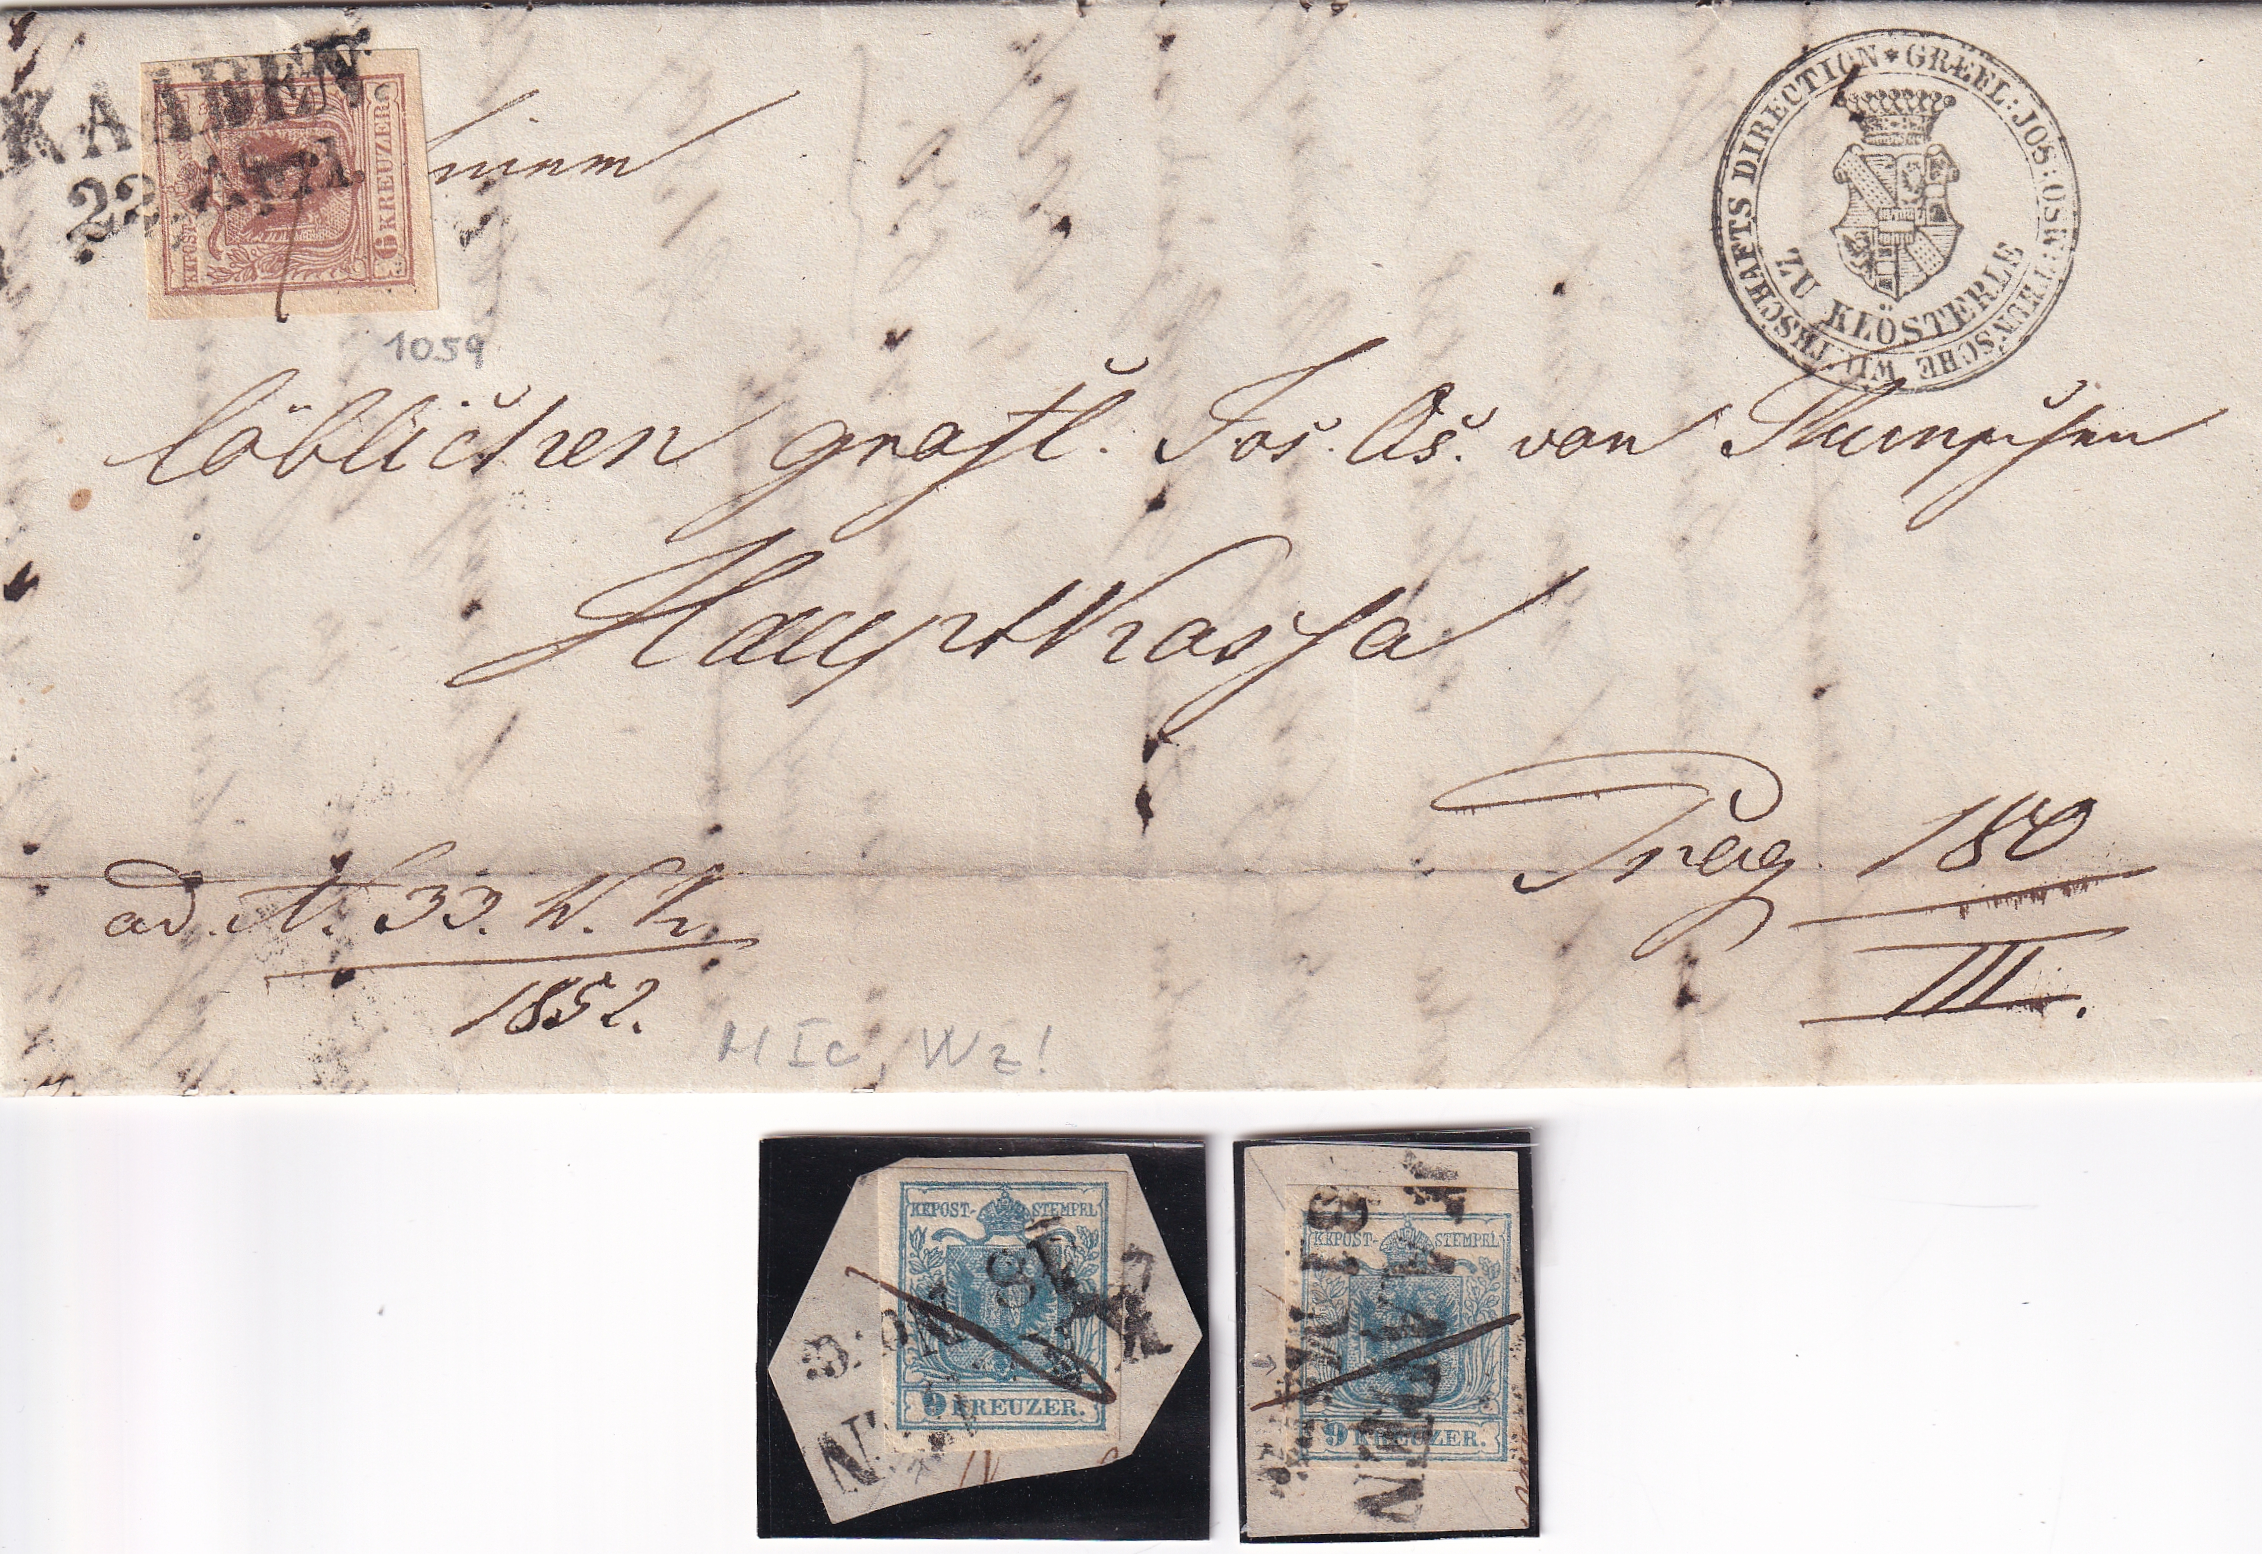 KAADEN
22. Apr.
KKPOST-
6 KREUZER
einem
1059
WIRTHSCHAFTS DIRECTION * GREFL: JOS: OSW: THUN'SCHE
ZU KLÖSTERLE
löblichen gräfl. Jos. Os. von Thun'schen
Hauptkassa
Prag 180
III.
ad. N. 33.
1852.
H Ic, Wz!
KKPOST- STEMPEL
9 KREUZER.
KKPOST- STEMPEL
9 KREUZER.